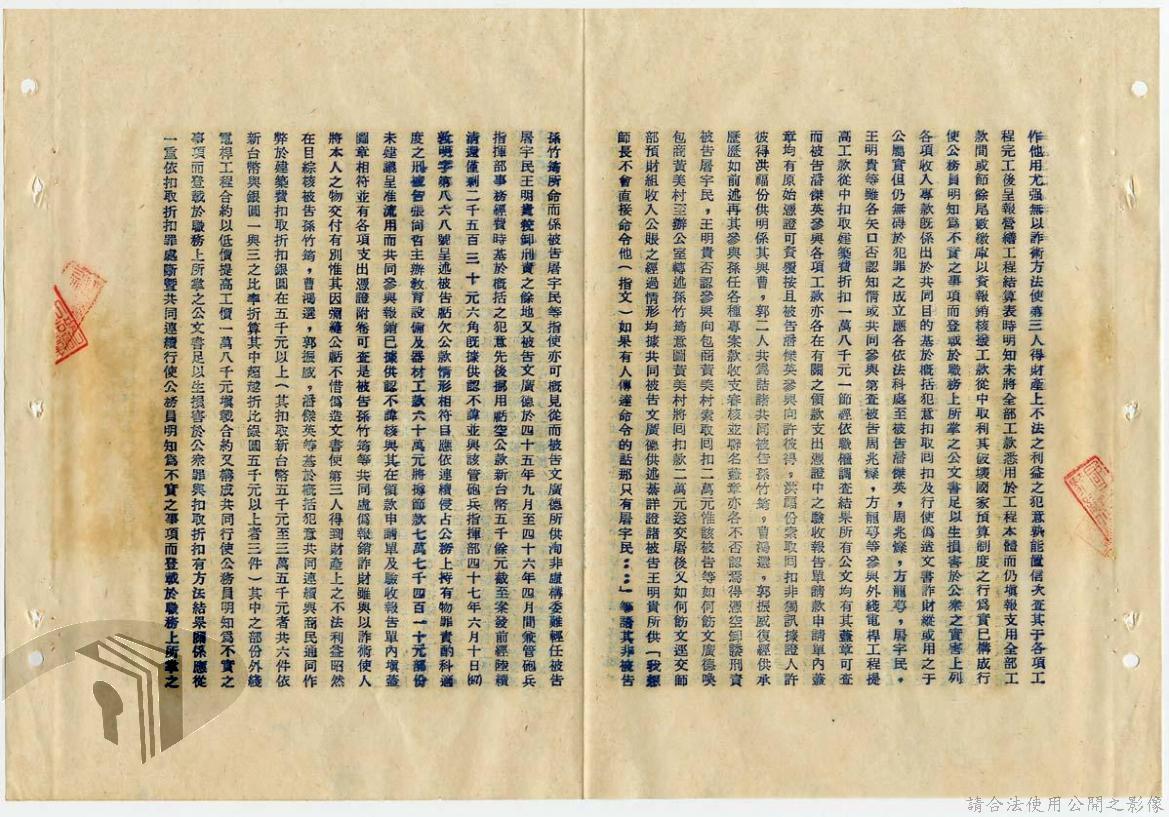 作他用尤强無以詐術方法使第三人得財產上不法之利益之犯意孰能置信次查其于各項工
程完工後呈報營繕工程結算表時明知未將全部工款悉用於工程本體而仍填報支用全部工
款間或節餘尾數繳庫以資報銷核援工款從中取利其破壞國家預算制度之行為實已構成行
使公務員明知為不實之事項而登載於職務上所掌之公文書足以生損害於公衆之實害上列
各項收入專款既係出於共同目的基於概括犯意扣取回扣及行使偽造文書詐財縱或用之于
公屬實但仍無碍於犯罪之成立應各依法科處至被告潘傑英，周兆燦，方龍蓴，屠宇民，
王明貴等雖各矢口否認知情或共同參與第查被告周兆燦，方龍蓴等參與外綫電桿工程提
高工款從中扣取建築費折扣一萬八千元一節經依職權調查結果所有公文均有其蓋章可查
而被告潘傑英參與各項工款亦各在有關之領款支出憑證中之驗收報告單請款申請單內蓋
章均有原始憑證可資覆按且被告潘傑英參與向許彼得，洪福份索取回扣非獨訊據證人許
彼得洪福份供明係其與曹，郭二人共為詰諸共同被告孫竹筠，曹鴻選，郭振威復經供承
歷歷如前述再其參與孫任各種專案款收支審核並聯名蓋章亦各不否認焉得憑空卸謗刑責
被告屠宇民，王明貴否認參與向包商黃美村索取回扣二萬元惟該被告等如何飭文廣德喚
包商黃美村至辦公室轉述孫竹筠意圖黃美村將回扣款二萬元送交屠後又如何飭文運交師
部預財組收入公賬之經過情形均據共同被告文廣德供述綦詳證諸被告王明貴所供「我想
師長不會直接命令他（指文）如果有人傳達命令的話那只有屠宇民：：：」等語其非被告
孫竹筠所命而係被告屠宇民等指使亦可概見從而被告文廣德所供洵非虛構委難輕任被告
屠宇民王明貴狡卸刑責之餘地又被告文廣德於四十五年九月至四十六年四月間兼管砲兵
指揮部事務經費時基於概括之犯意先後挪用虧空公款新台幣五千餘元截至案發前經陸續
清還僅剩二千五百三十元六角既據供認不諱並與該管砲兵指揮部四十七年六月十日(47)
字第八六八號呈述被告虧欠公款情形相符自應依連續侵占公務上持有物罪責酌科適
度之刑被告張尚哲主辦教育設備及器材工款六十萬元將撙節款七萬七千四百一十元部份
未建議呈准流用而共同參與報銷已據供認不諱核與其在領款申請單及驗收報告單內填蓋
圖章相符並有各項支出憑證附卷可查是被告孫竹筠等共同處偽報銷詐財雖與以詐術使人
將本人之物交付有別惟其因彌縫公虧不惜偽造文書使第三人得到財產上之不法利益昭然
在目綜核被告孫竹筠，曹鴻選，郭振威，潘傑英等基於概括犯意共同連續與商民通同作
弊於建築費扣取折扣銀圓在五千元以上（其扣取新台幣五千元至三萬五千元者共六件依
新台幣與銀圓一與三之比率折算其中超越折比銀圓五千元以上者三件）其中之部份外綫
電桿工程合約以低價提高工價一萬八千元填載合約又構成共同行使公務員明知為不實之
事項而登載於職務上所掌之公文書足以生損害於公衆罪與扣取折扣有方法結果關係應從
一重依扣取折扣罪處斷暨共同連續行使公務員明知為不實之事項而登載於職務上所掌之
請合法使用公開之影像